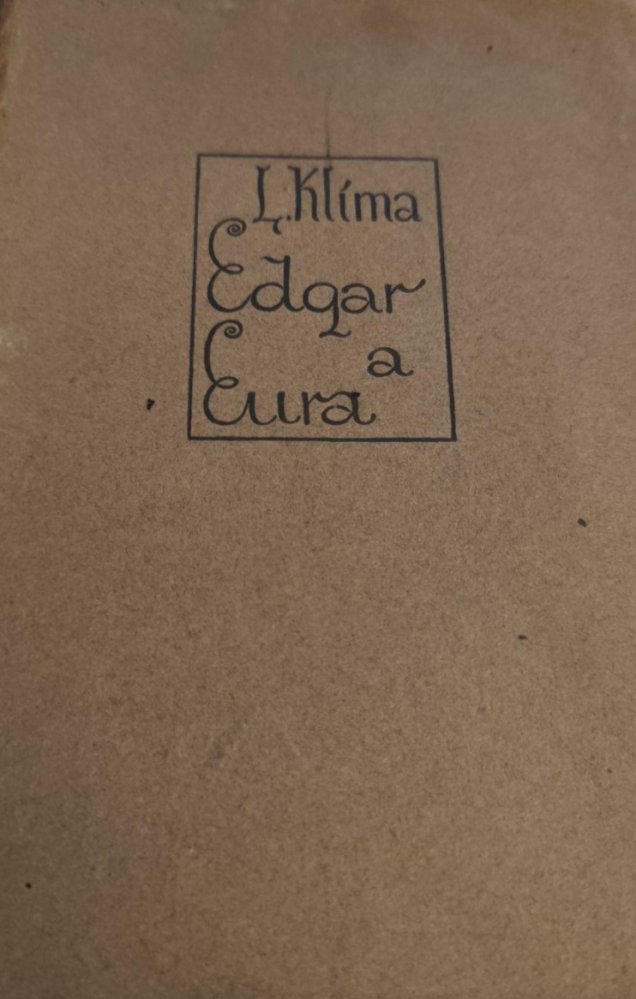 L. Klíma
Edgar
a
Eura